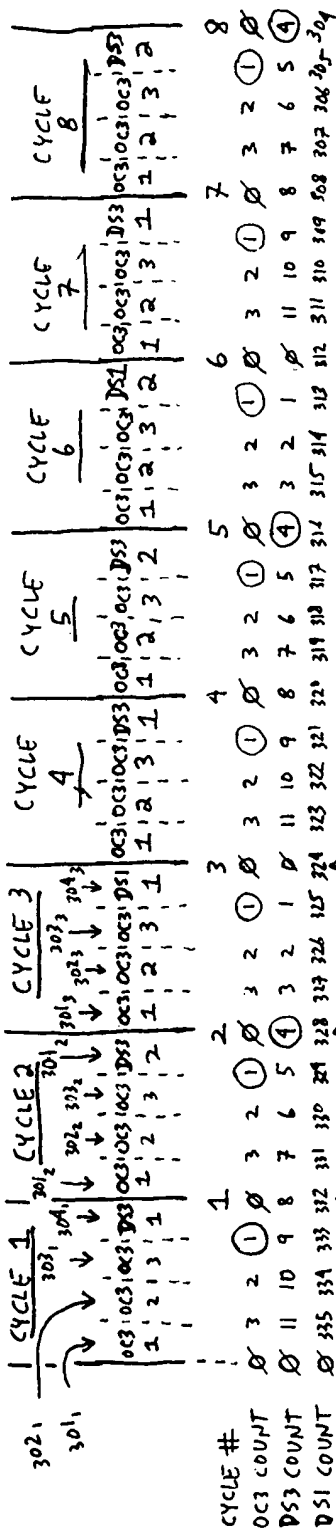 CYCLE 1 CYCLE 2 CYCLE 3 CYCLE 4 CYCLE 5 CYCLE 6 CYCLE 7 CYCLE 8
302₁ 303₁ 304₁ 301₂ 302₂ 303₂ 301₂ 301₃ 302₃ 303₃ 304₃
301₁
OC3 OC3 OC3 DS3 OC3 OC3 OC3 DS3 OC3 OC3 OC3 DS1 OC3 OC3 OC3 DS3 OC3 OC3 OC3 DS3 OC3 OC3 OC3 DS1 OC3 OC3 OC3 DS3 OC3 OC3 OC3 DS3
1 2 3 1 1 2 3 2 1 2 3 1 1 2 3 1 1 2 3 2 1 2 3 2 1 2 3 1 1 2 3 2
CYCLE # 1 2 3 4 5 6 7 8
OC3 COUNT Ø 3 2 1 Ø 3 2 1 Ø 3 2 1 Ø 3 2 1 Ø 3 2 1 Ø 3 2 1 Ø 3 2 1 Ø 3 2 1 Ø
DS3 COUNT Ø 11 10 9 8 7 6 5 4 3 2 1 Ø 11 10 9 8 7 6 5 4 3 2 1 Ø 11 10 9 8 7 6 5 4
DS1 COUNT Ø 335 334 333 332 331 330 329 328 327 326 325 324 323 322 321 320 319 318 317 316 315 314 313 312 311 310 309 308 307 306 305 304